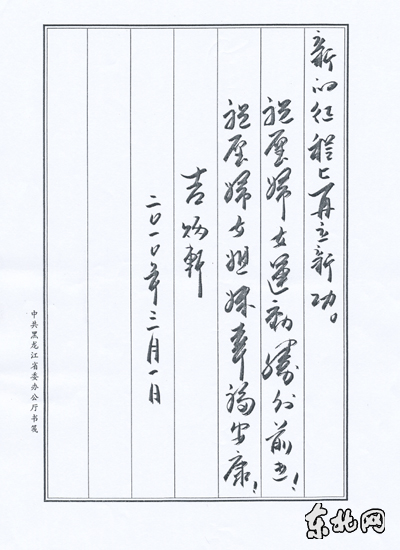 新的征程上再立新功。
祝愿婦女運動勝利前进!
祝愿婦女姐妹幸福安康!
吉炳軒
二〇一〇年三月一日
中共黑龙江省委办公厅书笺
东北网